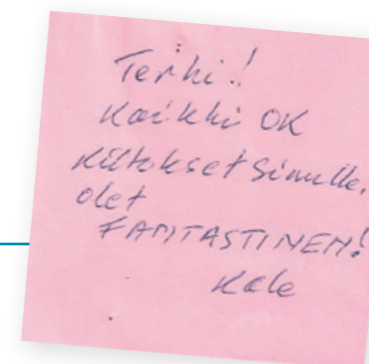 Terhi!
Kaikki OK
Kiitokset Sinulle,
olet
FANTASTINEN!
Kale